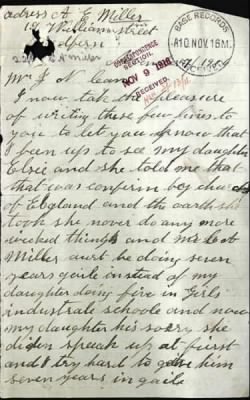 adress A E Miller
19 William street
BASE RECORDS
A10.NOV.16M.
CORRESPONDENCE
SECTION
NOV 9 1916
RECEIVED
Miller
Mr J N
I now take the pleasure
of writing these few lines to
you to let you now that
I been up to see my daughter
Elsie and she told me that
that was confirm bey church
of England and the oarth she
took she never do any more
wicked things and
Miller aurt be doing seven
years gaile instead of my
daughter doing five in Girls
industrate schoole and now
my daughter his sorry she
diden speak up at fierst
and I try hard to gave him
seven years in gaile